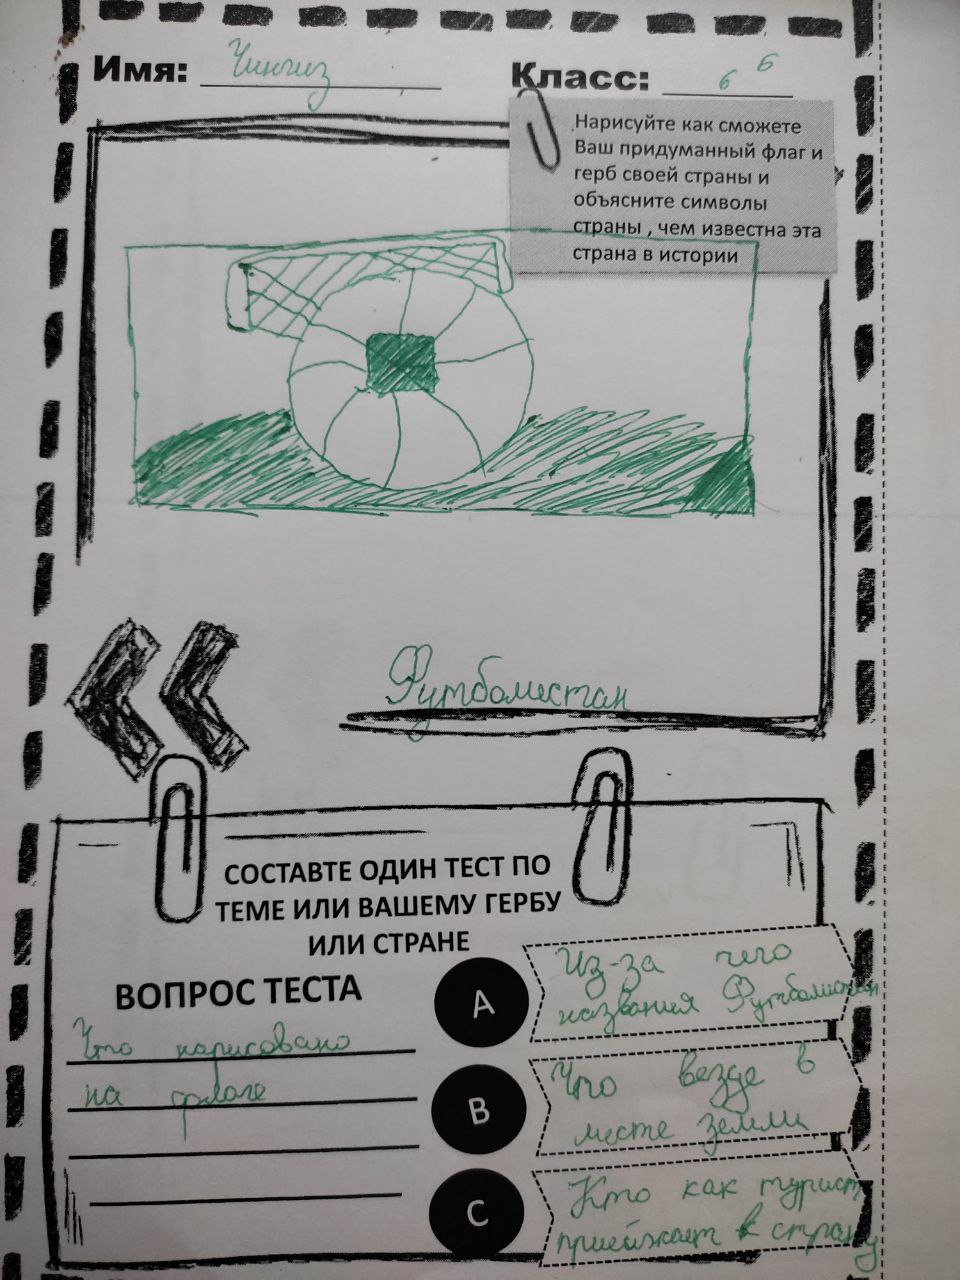 Имя: Чингиз
Класс: 6 Б
Нарисуйте как сможете
Ваш придуманный флаг и
герб своей страны и
объясните символы
страны , чем известна эта
страна в истории
Футболистан
СОСТАВТЕ ОДИН ТЕСТ ПО
ТЕМЕ ИЛИ ВАШЕМУ ГЕРБУ
ИЛИ СТРАНЕ
ВОПРОС ТЕСТА
Что нарисовано
на флаге
A
Из-за чего
названия Футболистан
B
Что везде в
месте земли
C
Кто как турист
приезжает в страну